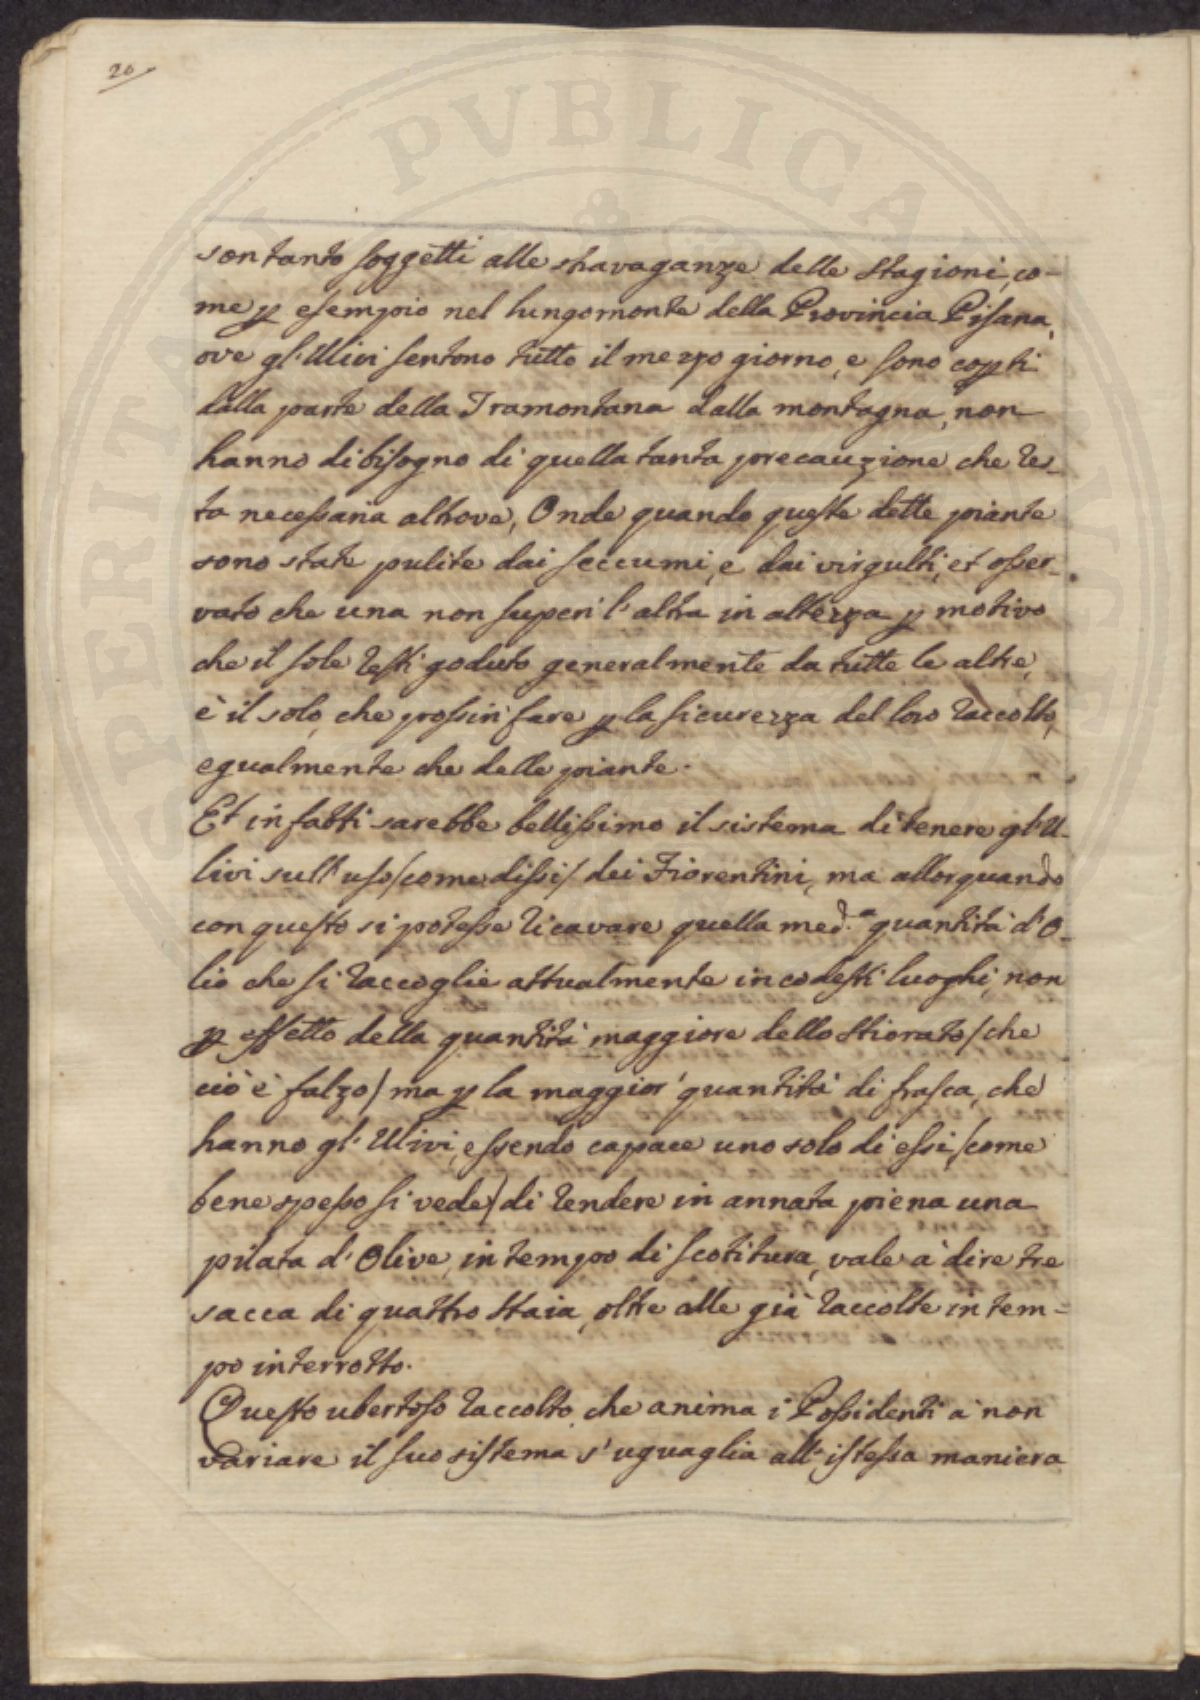 26
son tanto soggetti alle stravaganze delle Stagioni, co-
me p esempio nel lungomonte della Provincia Pisana,
ove gl'Ulivi sentono tutto il mezzo giorno, e sono copti
dalla parte della Tramontana dalla montagna, non
hanno di bisogno di quella tanta precauzione che res-
ta necessaria altrove, Onde quando queste dette piante
sono state pulite dai seccumi, e dai virgulti, et osser-
vato che una non superi l'altra in altezza p motivo
che il sole resti goduto generalmente da tutte le altre,
è il solo, che possin fare p la sicurezza del loro raccolto,
egualmente che delle piante.
Et in fatti sarebbe bellissimo il sistema di tenere gl'U-
livi sull'uso/come dissi/ dei Fiorentini, ma allorquando
con questo si potesse ricavare quella med.ª quantità d'O-
lio che si raccoglie attualmente in codesti luoghi, non
p effetto della quantità maggiore dello Stiorato/che
ciò è falzo/ ma p la maggior quantità di frasca, che
hanno gl'Ulivi, essendo capace uno solo di essi,/come
bene spesso si vede/ di rendere in annata piena una
pilata d'Olive, in tempo di scotitura, vale a dire tre
sacca di quattro Staia, oltre alle già raccolte in tem-
po interrotto.
Questo ubertoso raccolto, che anima i Possidenti a non
variare il suo sistema s'uguaglia all'istessa maniera
PERITAS PVBLICA